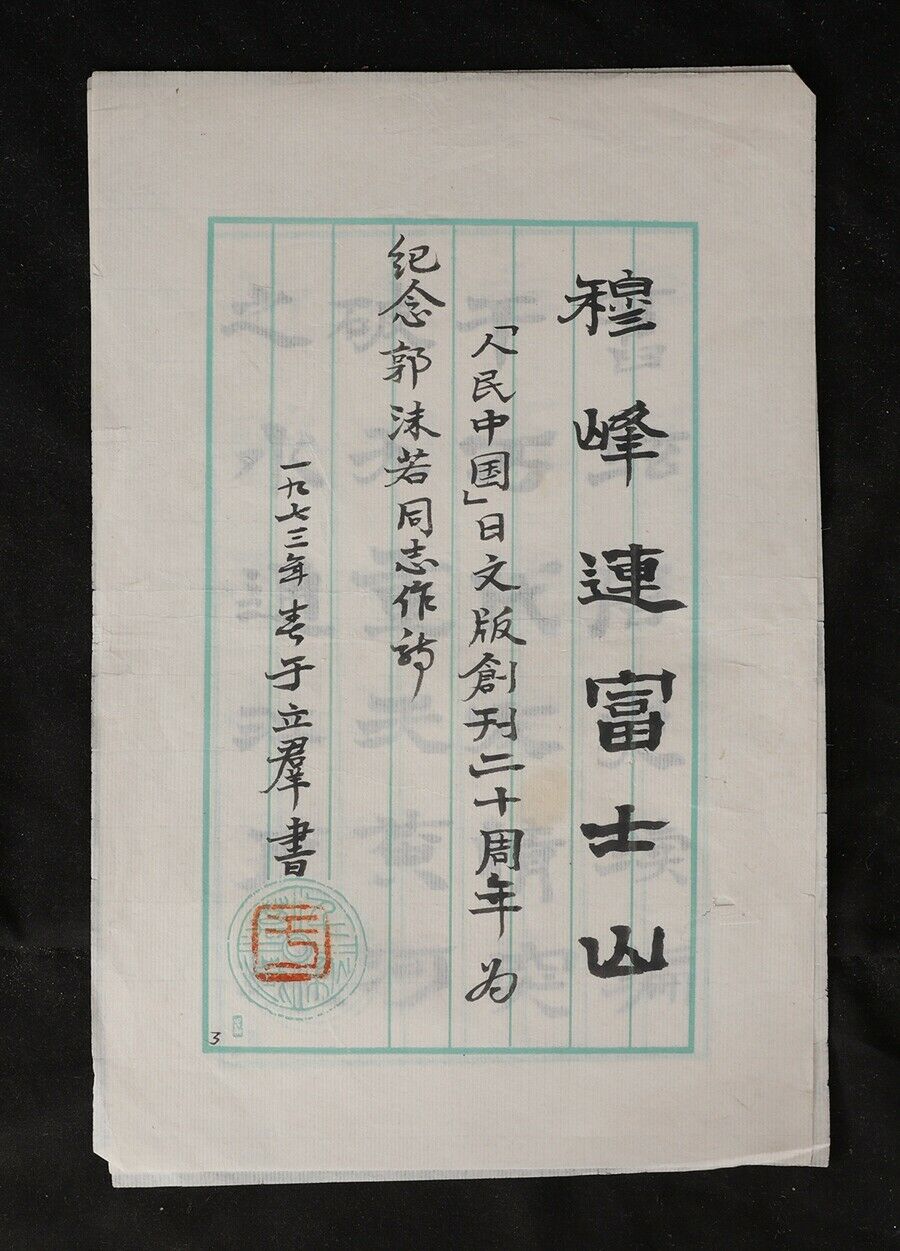 穆峰連富士山
「人民中国」日文版創刊二十周年为
纪念郭沫若同志作詩
一九七三年春于立羣書
3